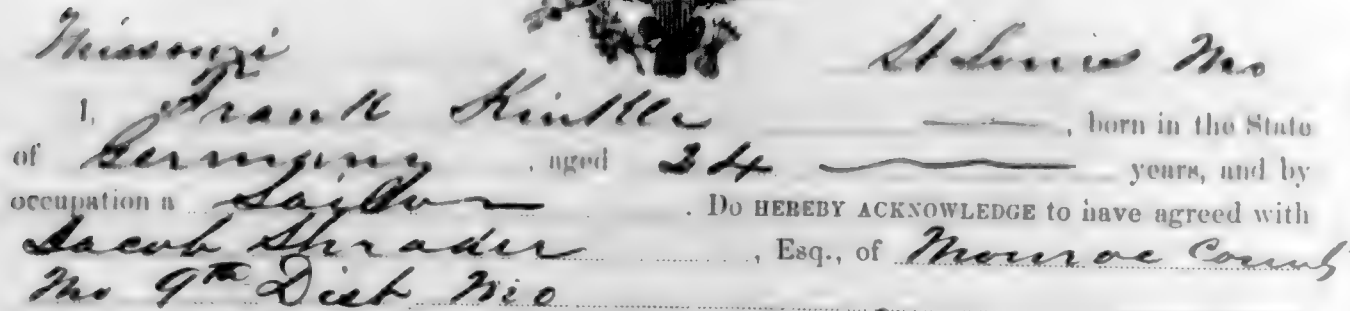 Missouri St Louis Mo
I, Frank Kinkle, born in the State
of Germany, aged 24 years, and by
occupation a Sailor. Do HEREBY ACKNOWLEDGE to have agreed with
Jacob Shrader, Esq., of Monroe County
Mo 9th Dist Mo